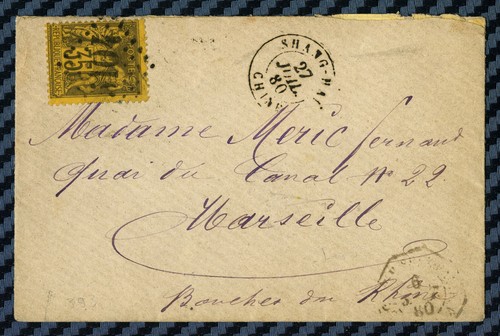 SHANG-HAI
27
JUIL
80
CHINE
Madame Meric fernand
Quai du Canal Nº 22
Marseille
Bouches du Rhône
80